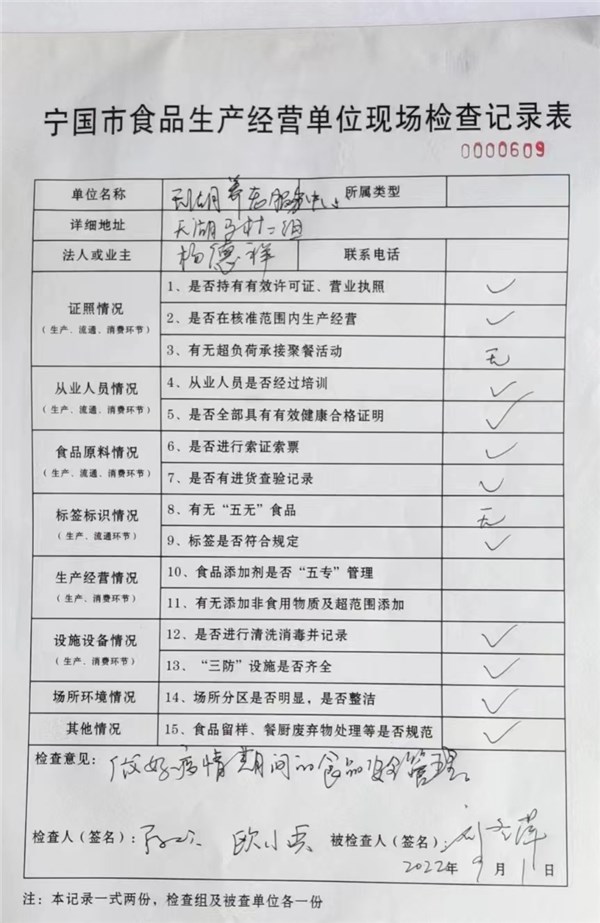 宁国市食品生产经营单位现场检查记录表
0000609
单位名称 天湖养老服务中心 所属类型
详细地址 天湖多村二组
法人或业主 杨德祥 联系电话
证照情况
(生产、流通、消费环节)
1、是否持有有效许可证、营业执照 ✓
2、是否在核准范围内生产经营 ✓
3、有无超负荷承接聚餐活动 无
从业人员情况
(生产、流通、消费环节)
4、从业人员是否经过培训 ✓
5、是否全部具有有效健康合格证明 ✓
食品原料情况
(生产、流通、消费环节)
6、是否进行索证索票 ✓
7、是否有进货查验记录 ✓
标签标识情况
(生产、流通环节)
8、有无“五无”食品 无
9、标签是否符合规定 ✓
生产经营情况
(生产、消费环节)
10、食品添加剂是否“五专”管理
11、有无添加非食用物质及超范围添加
设施设备情况
(生产、消费环节)
12、是否进行清洗消毒并记录 ✓
13、“三防”设施是否齐全 ✓
场所环境情况 14、场所分区是否明显，是否整洁 ✓
其他情况 15、食品留样、餐厨废弃物处理等是否规范 ✓
检查意见： 做好疫情期间的食品安全管理。
检查人（签名）： 欧小兵 被检查人（签名）：
2022年 9月 1日
注：本记录一式两份，检查组及被查单位各一份